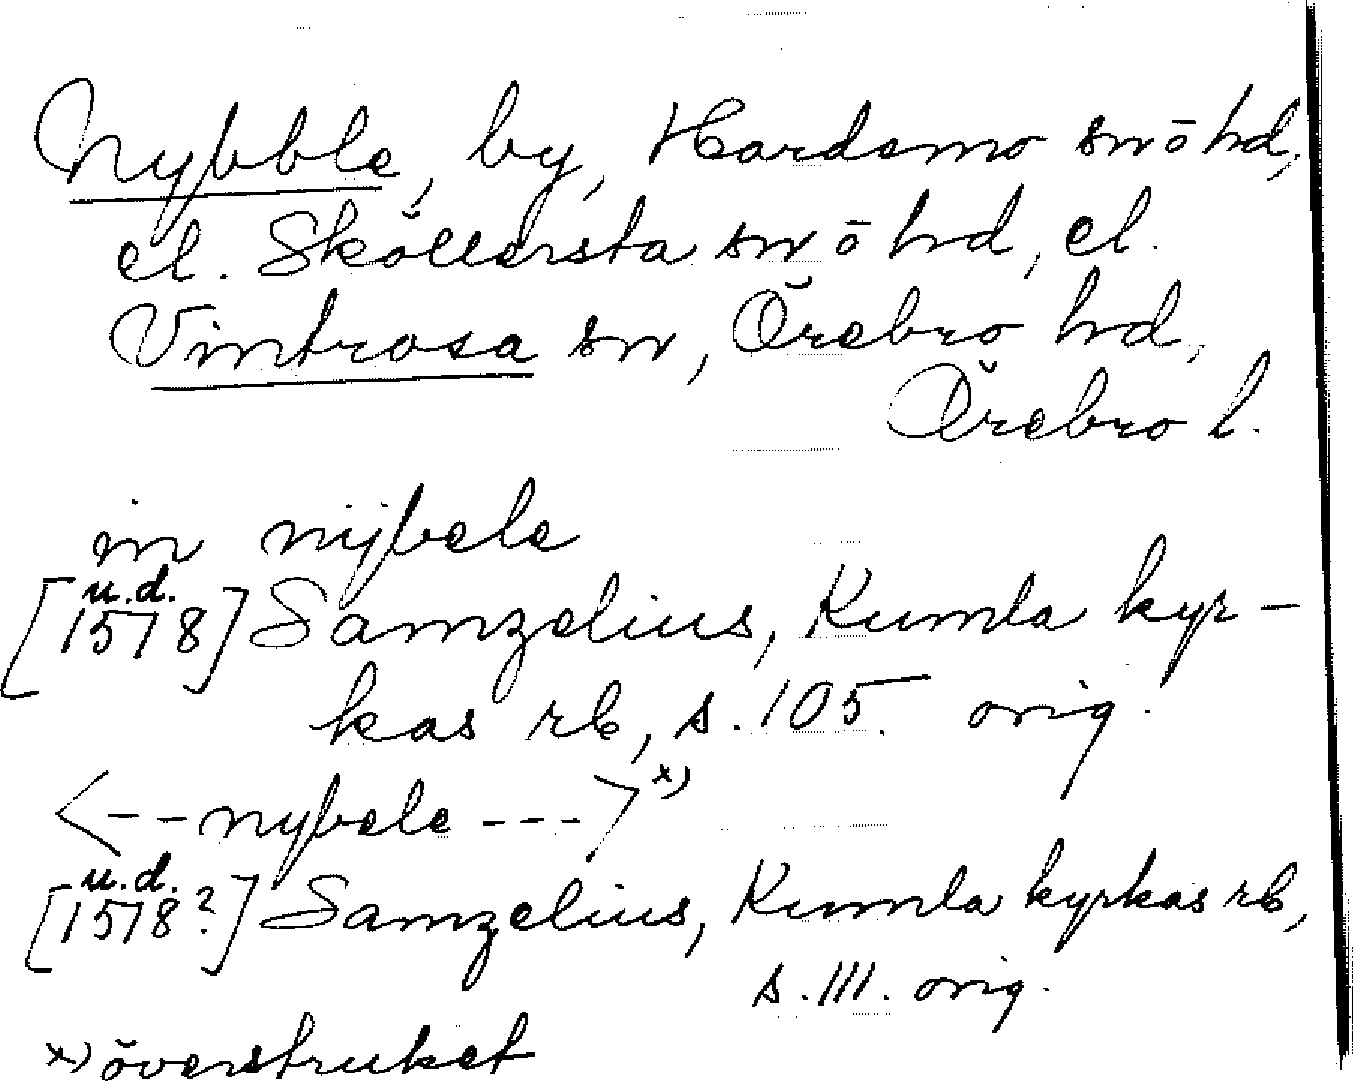 Nybble, by, Hardemo sn ō hd,
el. Sköllersta sn ō hd, el.
Vintrosa sn, Örebro hd,
Örebro l.
in nijbele
[u.d. 1578] Samzelius, Kumla kyr-
kas rb, s. 105. orig.
<--nybele---> x)
[u.d. 1578?] Samzelius, Kumla kyrkas rb,
s. 111. orig.
x) överstruket